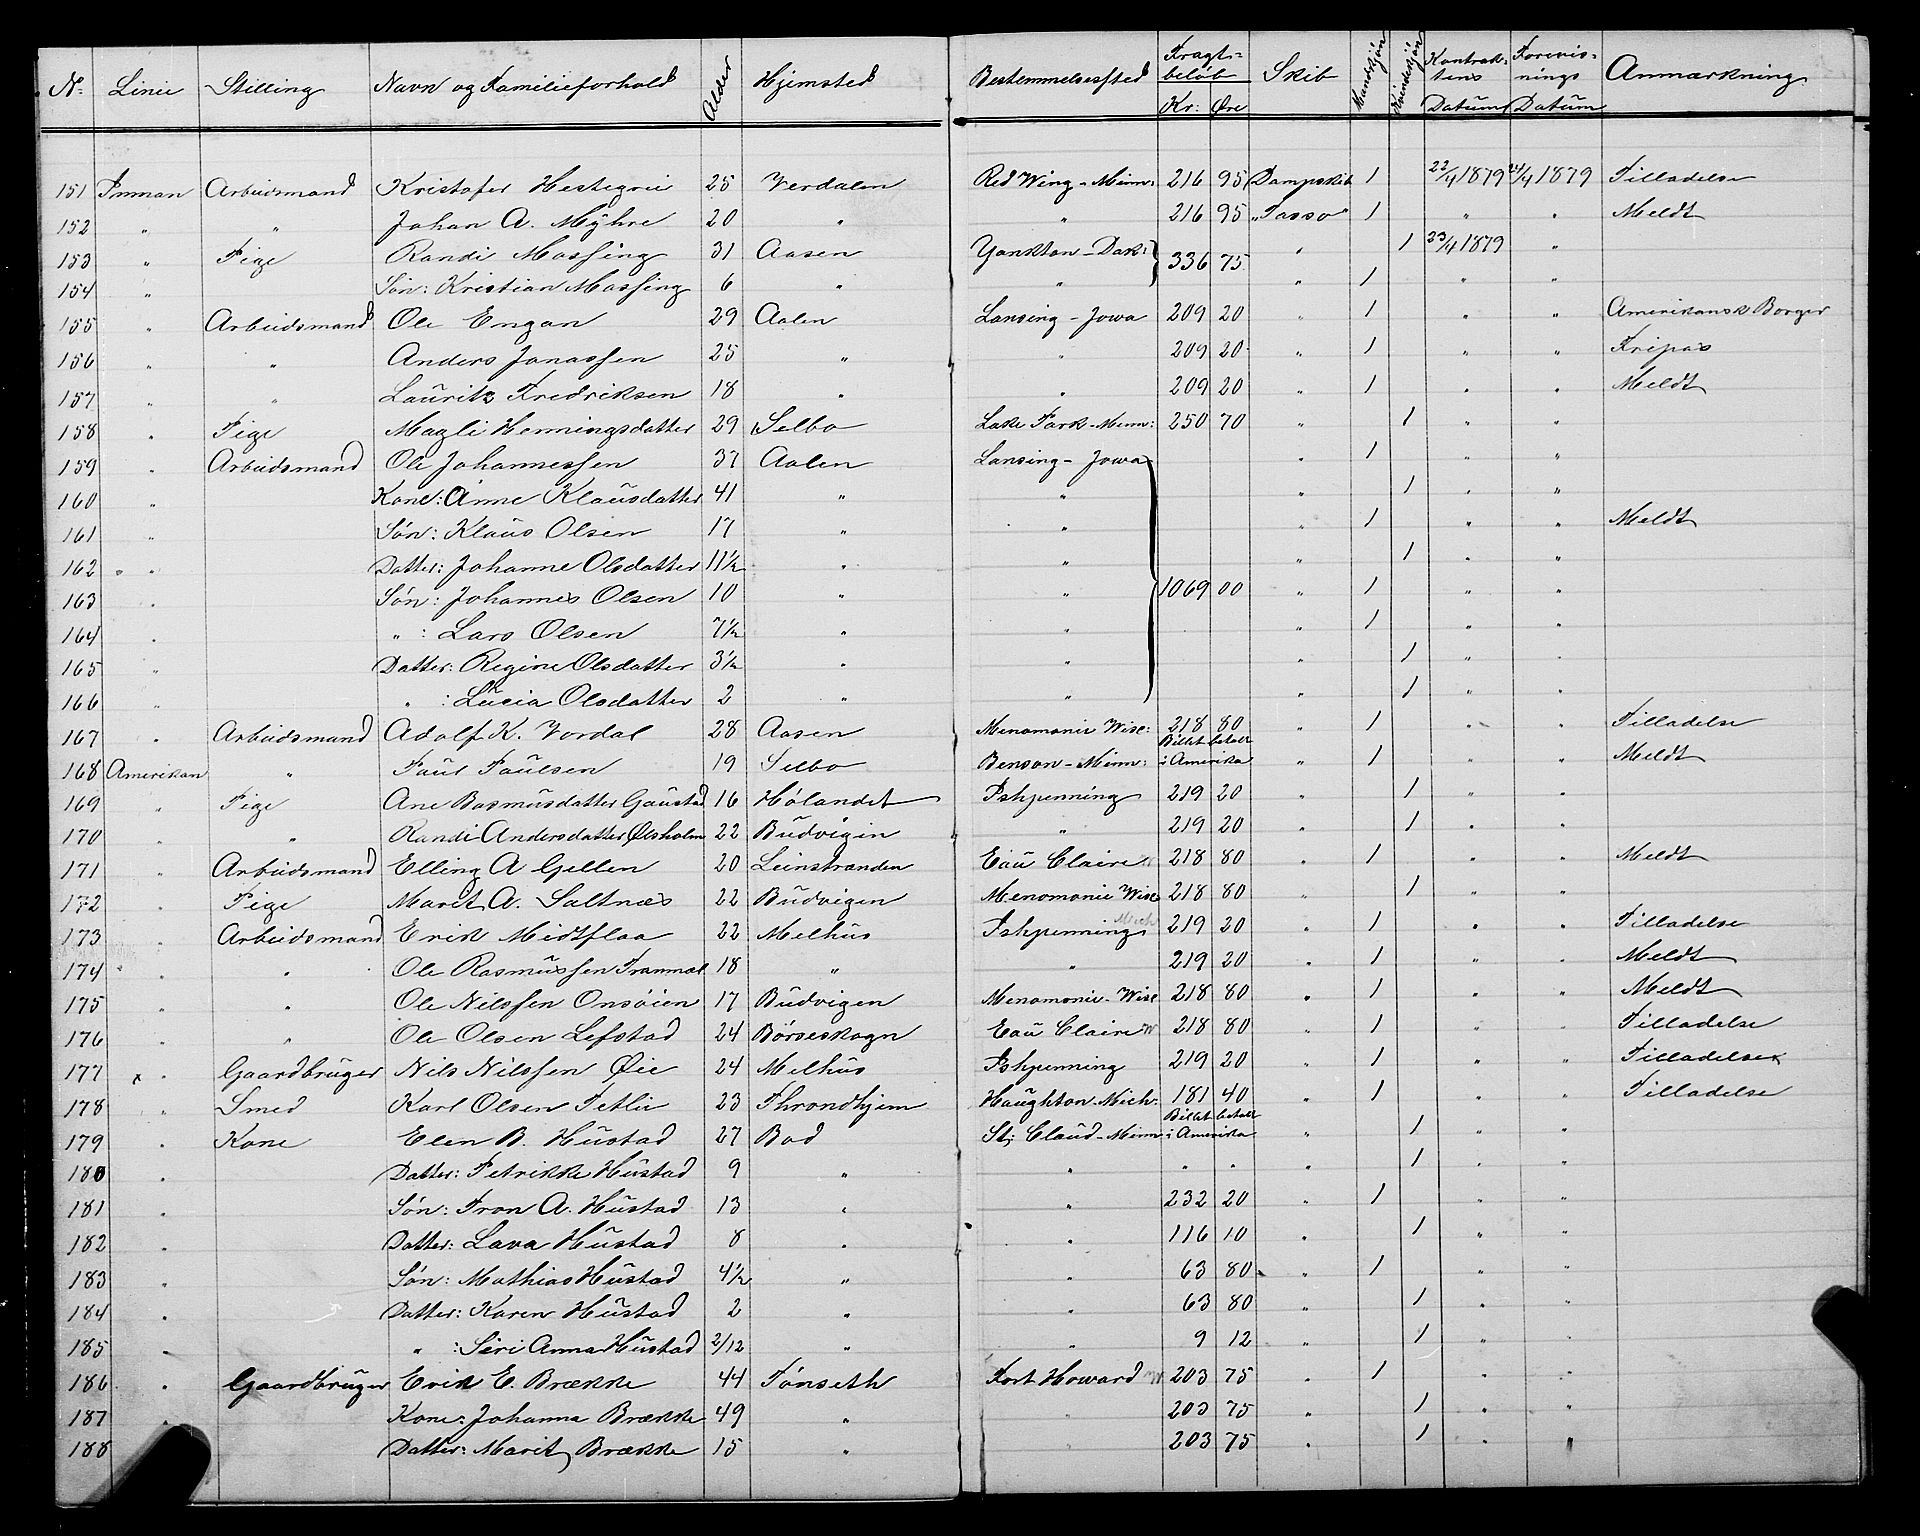 No. Linie Stilling Navn og Familieforhold Alder Hjemsted Bestemmelsessted Fragtbeløb Kr: Øre Skib Mandskjøn Kvindeskjøn Kontraktens Datum Forevisnings Datum Anmærkning
151 Inman Arbeidsmand Kristofer Hestegrei 25 Verdalen Red Wing - Minn: 216 95 Dampskib 1 22/4 1879 24/4 1879 Tilladelse
152 " " Johan A. Myhre 20 " " 216 95 "Tasso" 1 " " Meldt
153 " Pige Randi Mossing 31 Aasen Yankton - Dak: 336 75 " 1 23/4 1879 "
154 " Søn: Kristian Mossing 6 " " " 1 " "
155 " Arbeidsmand Ole Engan 29 Aalen Lansing - Jowa 209 20 " 1 " " Amerikansk Borger
156 " " Anders Jonassen 25 " " 209 20 " 1 " " Fripas
157 " " Lauritz Fredriksen 18 " " 209 20 " 1 " " Meldt
158 " Pige Magli Henningsdatter 29 Selbo Lake Park - Minn: 250 70 " 1 " "
159 " Arbeidsmand Ole Johannessen 37 Aalen Lansing - Jowa " 1 " "
160 " Kone: Anne Klausdatter 41 " " " 1 " "
161 " Søn: Klaus Olsen 17 " " " 1 " " Meldt
162 " Datter: Johanne Olsdatter 11½ " " " 1 " "
163 " Søn: Johannes Olsen 10 " " 1069 00 " 1 " "
164 " " : Lars Olsen 7½ " " " 1 " "
165 " Datter: Regine Olsdatter 3½ " " " 1 " "
166 " " : Lucia Olsdatter 2 " " " 1 " "
167 " Arbeidsmand Adolf K. Vordal 28 Aasen Menomonie Wisc: 218 80 " 1 " " Tilladelse
168 Amerikan " Paul Paulsen 19 Selbo Benson - Minn: Billet betalt i Amerika " 1 " " Meldt
169 " Pige Ane Rasmusdatter Gaustad 16 Hølandet Ishpenning 219 20 " 1 " "
170 " " Randi Andersdatter Øisholm 22 Budvigen " 219 20 " 1 " "
171 " Arbeidsmand Elling A Gellen 20 Leinstranden Eau Claire W 218 80 " 1 " " Meldt
172 " Pige Marit A. Saltnæs 22 Budvigen Menomonie Wisc 218 80 " 1 " "
173 " Arbeidsmand Erik Midtflaa 22 Melhus Ishpenning Mich 219 20 " 1 " " Tilladelse
174 " " Ole Rasmussen Tranmæl 18 " " 219 20 " 1 " " Meldt
175 " " Ole Nilssen Onsøien 17 Budvigen Menomonie - Wisc 218 80 " 1 " " Meldt
176 " " Ole Olsen Lefstad 24 Børseskogn Eau Claire W 218 80 " 1 " " Tilladelse
177 x " Gaardbruger Nils Nilssen Øie 24 Melhus Ishpenning 219 20 " 1 " " Tilladelse
178 " Smed Karl Olsen Petlie 23 Throndhjem Haughton - Mich: 181 40 " 1 " " Tilladelse
179 " Kone Elen B. Hustad 27 Bod St: Claud - Minn Billet betalt i Amerika " 1 " "
180 " Datter: Petrikke Hustad 9 " " " " " 1 " "
181 " Søn: Tron A. Hustad 13 " " 232 20 " 1 " "
182 " Datter: Lava Hustad 8 " " 116 10 " 1 " "
183 " Søn: Mathias Hustad 4½ " " 63 80 " 1 " "
184 " Datter: Karen Hustad 2 " " 63 80 " 1 " "
185 " " : Seri Anna Hustad 2/12 " " 9 12 " 1 " "
186 " Gaardbruger Erik E. Brække 44 Tønseth Fort Howard W 203 75 " 1 " "
187 " Kone: Johanna Brække 49 " " 203 75 " 1 " "
188 Datter: Marit Brække 15 " " 203 75 " 1 " "